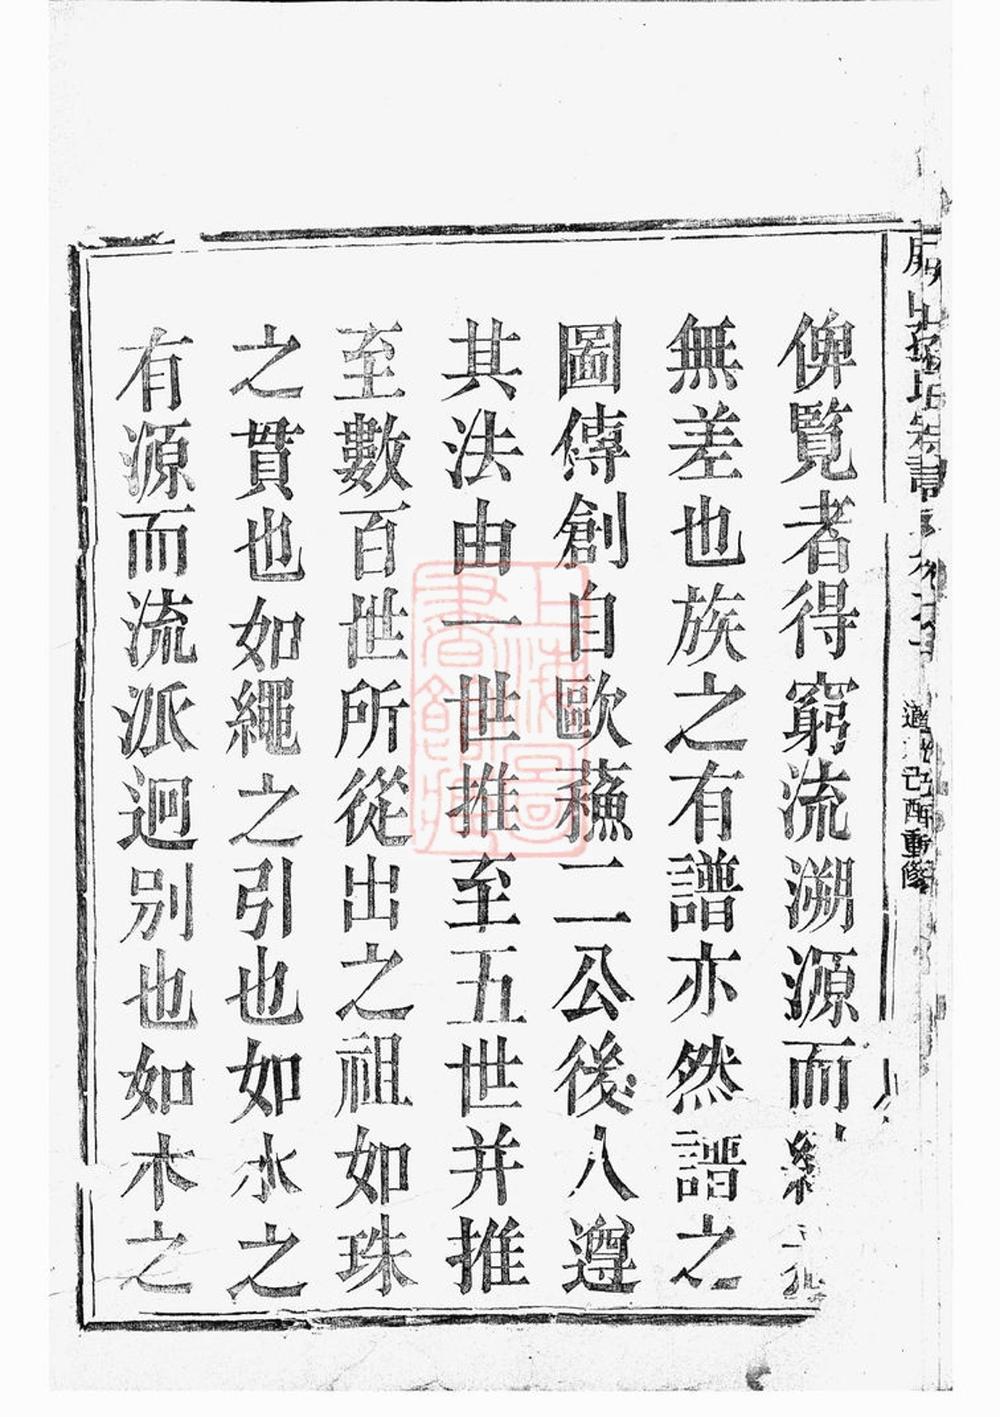 俾覽者得窮流溯源而
無差也族之有譜亦然譜之
圖傳創自歐蘓二公後人遵
其法由一世推至五世并推
至數百世所從出之祖如珠
之貫也如繩之引也如水之
有源而流派迥别也如木之
己酉重修
上海圖
書館藏